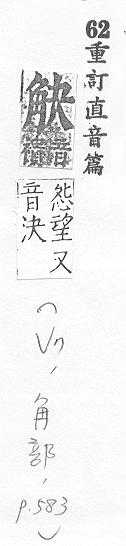 62重訂直音篇
觖
怨望又
音決
角部,
p.583)